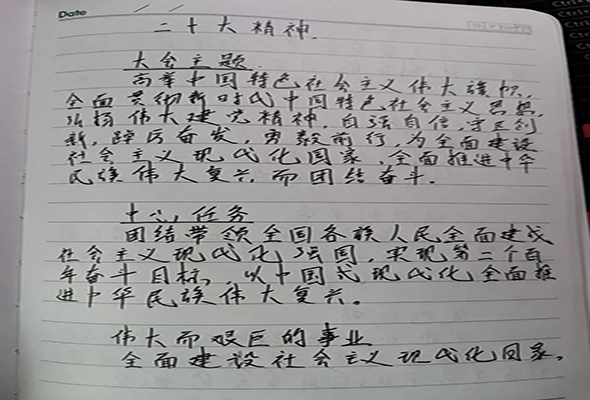 Date
二十大精神.
大会主题
高举中国特色社会主义伟大旗帜,
全面贯彻新时代中国特色社会主义思想,
弘扬伟大建党精神,自信自强,守正创
新,踔厉奋发,勇毅前行,为全面建设
社会主义现代化国家,全面推进中华
民族伟大复兴而团结奋斗.
中心任务
团结带领全国各族人民全面建成
社会主义现代化强国,实现第二个百
年奋斗目标,以中国式现代化全面推
进中华民族伟大复兴.
伟大而艰巨的事业
全面建设社会主义现代化国家.